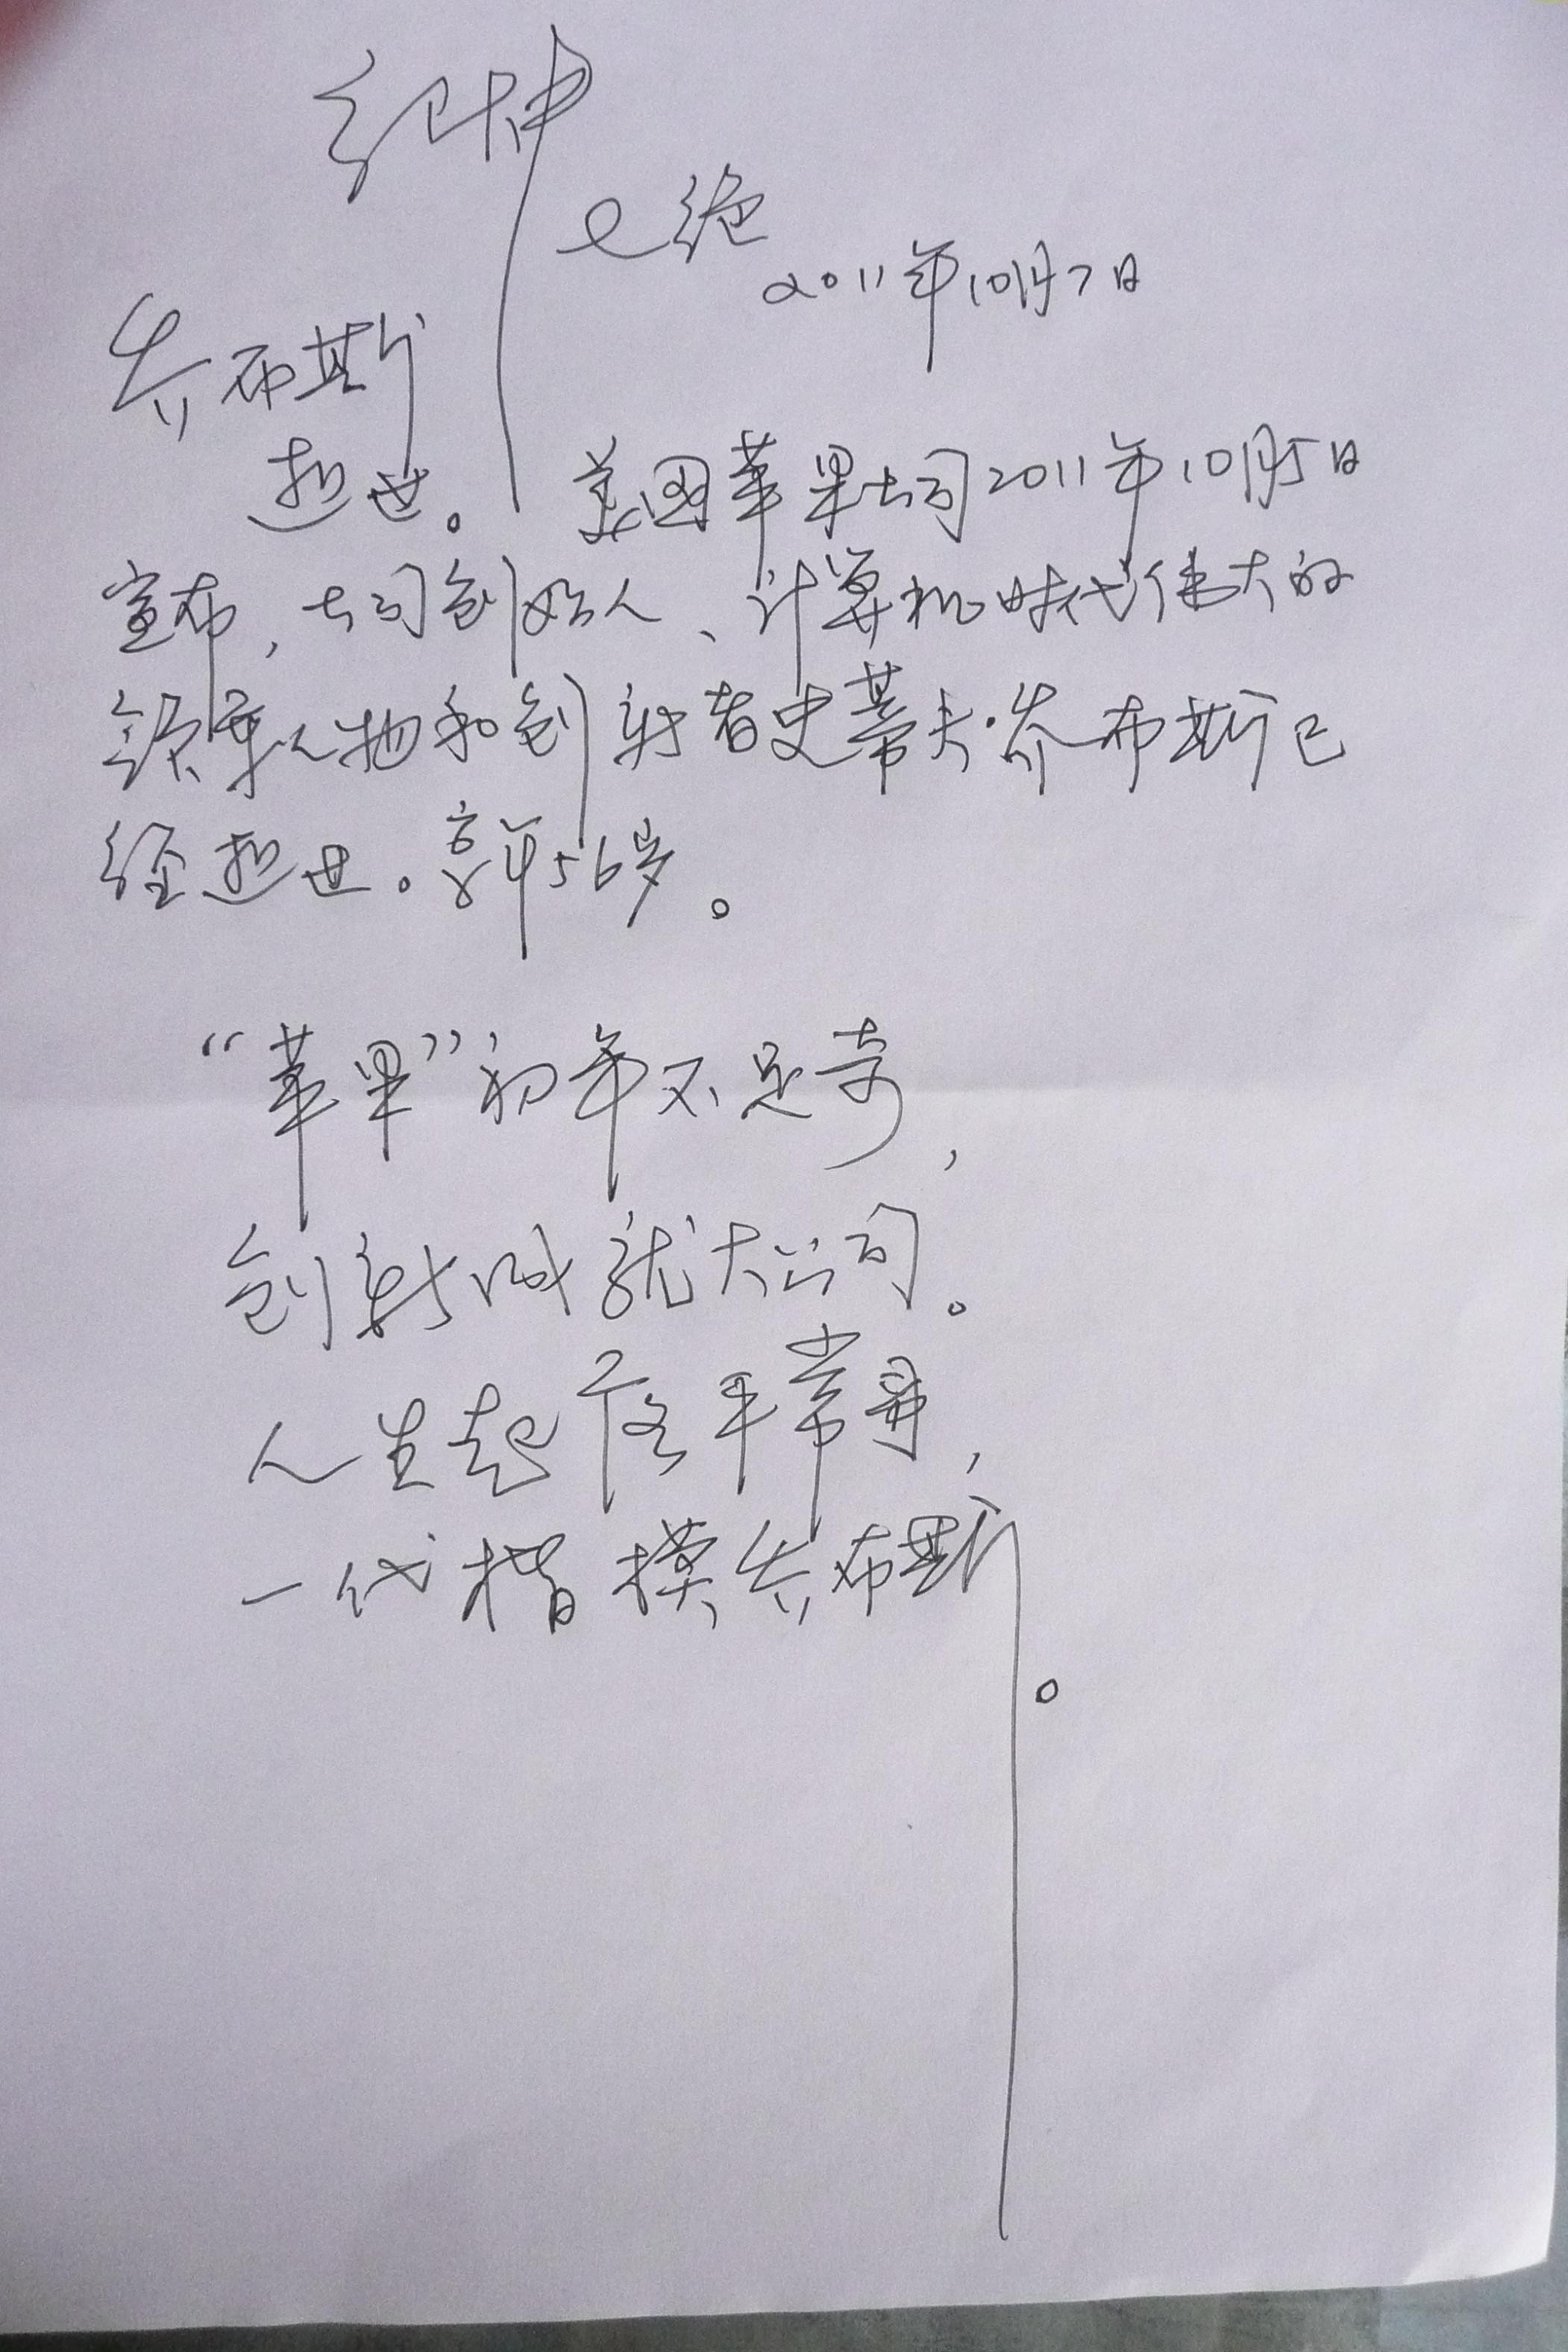 纪坤
七绝
2011年10月7日
乔布斯
逝世。
美国苹果公司2011年10月5日
宣布,公司创始人、计算机时代伟大的
领军人物和创新者史蒂夫·乔布斯已
经逝世。享年56岁。
“苹果”初年不足奇,
创新成就大公司。
人生起落平常事,
一代楷模乔布斯。